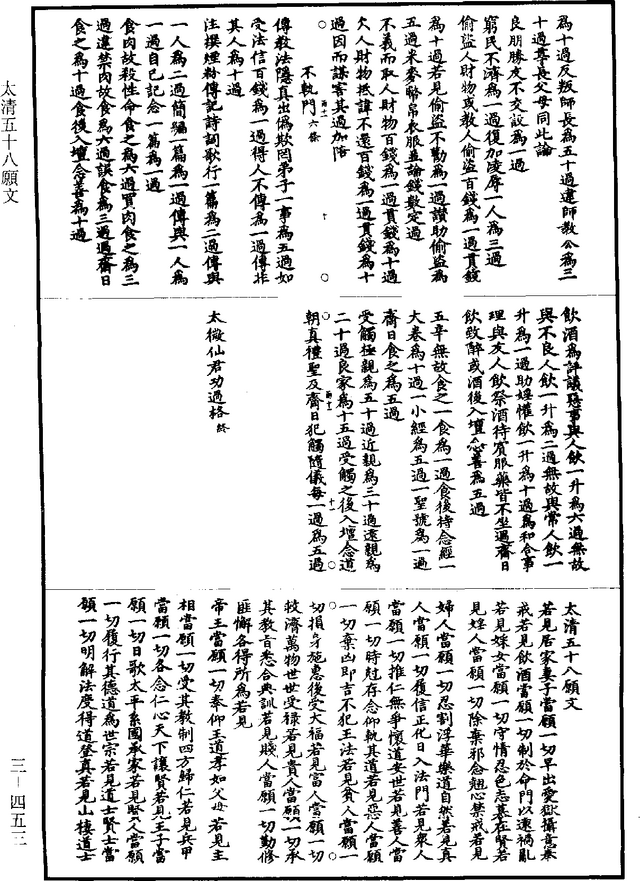 為十過反叛師長為五十過違師教公為三
十過尊長父母同此論
良朋勝友不交設為一過
窮民不濟為一過復加陵辱一人為三過
偷盜人財物或教人偷盜百錢為一過貫錢
為十過若見偷盜不勸為一過讚助偷盜為
五過米麥幣帛衣服並論錢數定過
不義而取人財物百錢為一過貫錢為十過
欠人財物抵諱不還百錢為一過貫錢為十
過因而謀害其過加倍
不軌門六條
傳教法隱真出偽欺罔弟子一事為五過如
受法信百錢為一過得人不傳為一過傳非
其人為十過
注撰煙粉傳記詩詞歌行一篇為二過傳與
一人為二過簡編一篇為一過傳與一人為
一過自己記念一篇為一過
食肉故殺性命食之為六過買肉食之為三
過違禁肉故食為六過誤食為三過遇齋日
食之為十過食後入壇念善為十過
飲酒為評議惡事與人飲一升為六過無故
與不良人飲一升為二過無故與常人飲一
升為一過助婬懽飲一升為十過為和合事
理與友人飲祭酒待賓服藥皆不坐過齋日
飲致醉或酒後入壇念善為五過
五辛無故食之一食為一過食後持念經一
大卷為十過一小經為五過一聖號為一過
齋日食之為五過
受觸極親為五十過近親為三十過遠親為
二十過良家為十五過受觸之後入壇念道
朝真禮聖及齋日犯觸隨儀每一過為五過
太微仙君功過格終
太清五十八願文
若見居家妻子當願一切早出愛獄攝意奉
戒若見飲酒當願一切制於命門以遠禍亂
若見婇女當願一切守情忍色志慕在賢若
見婬人當願一切除棄邪念翹心禁戒若見
婦人當願一切忍割浮華樂道自然若見真
人當願一切履信正化日入法門若見眾人
當願一切推仁無爭懷道安世若見善人當
願一切時赴存念仰軌其道若見惡人當願
一切棄凶即吉不犯王法若見貧人當願一
切損身施惠後受大福若見富人當願一切
救濟萬物世世受祿若見貴人當願一切承
其教旨悉合典訓若見賤人當願一切勤修
匪懈各得所為若見
帝王當願一切奉仰王道孝如父母若見主
相當願一切受其教制四方歸仁若見兵甲
當願一切各念仁心天下讓賢若見王子當
願一切日歌太平系國承家若見賢人當願
一切履行其德道為世宗若見道士賢士當
願一切明解法度得道登真若見山棲道士
太清五十八願文
三－四五三